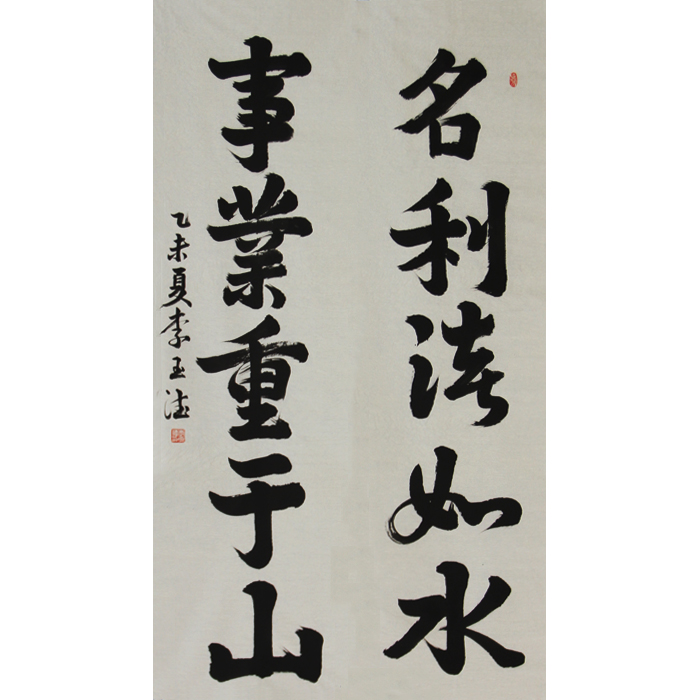 名利淡如水
事業重于山
乙未夏李玉德